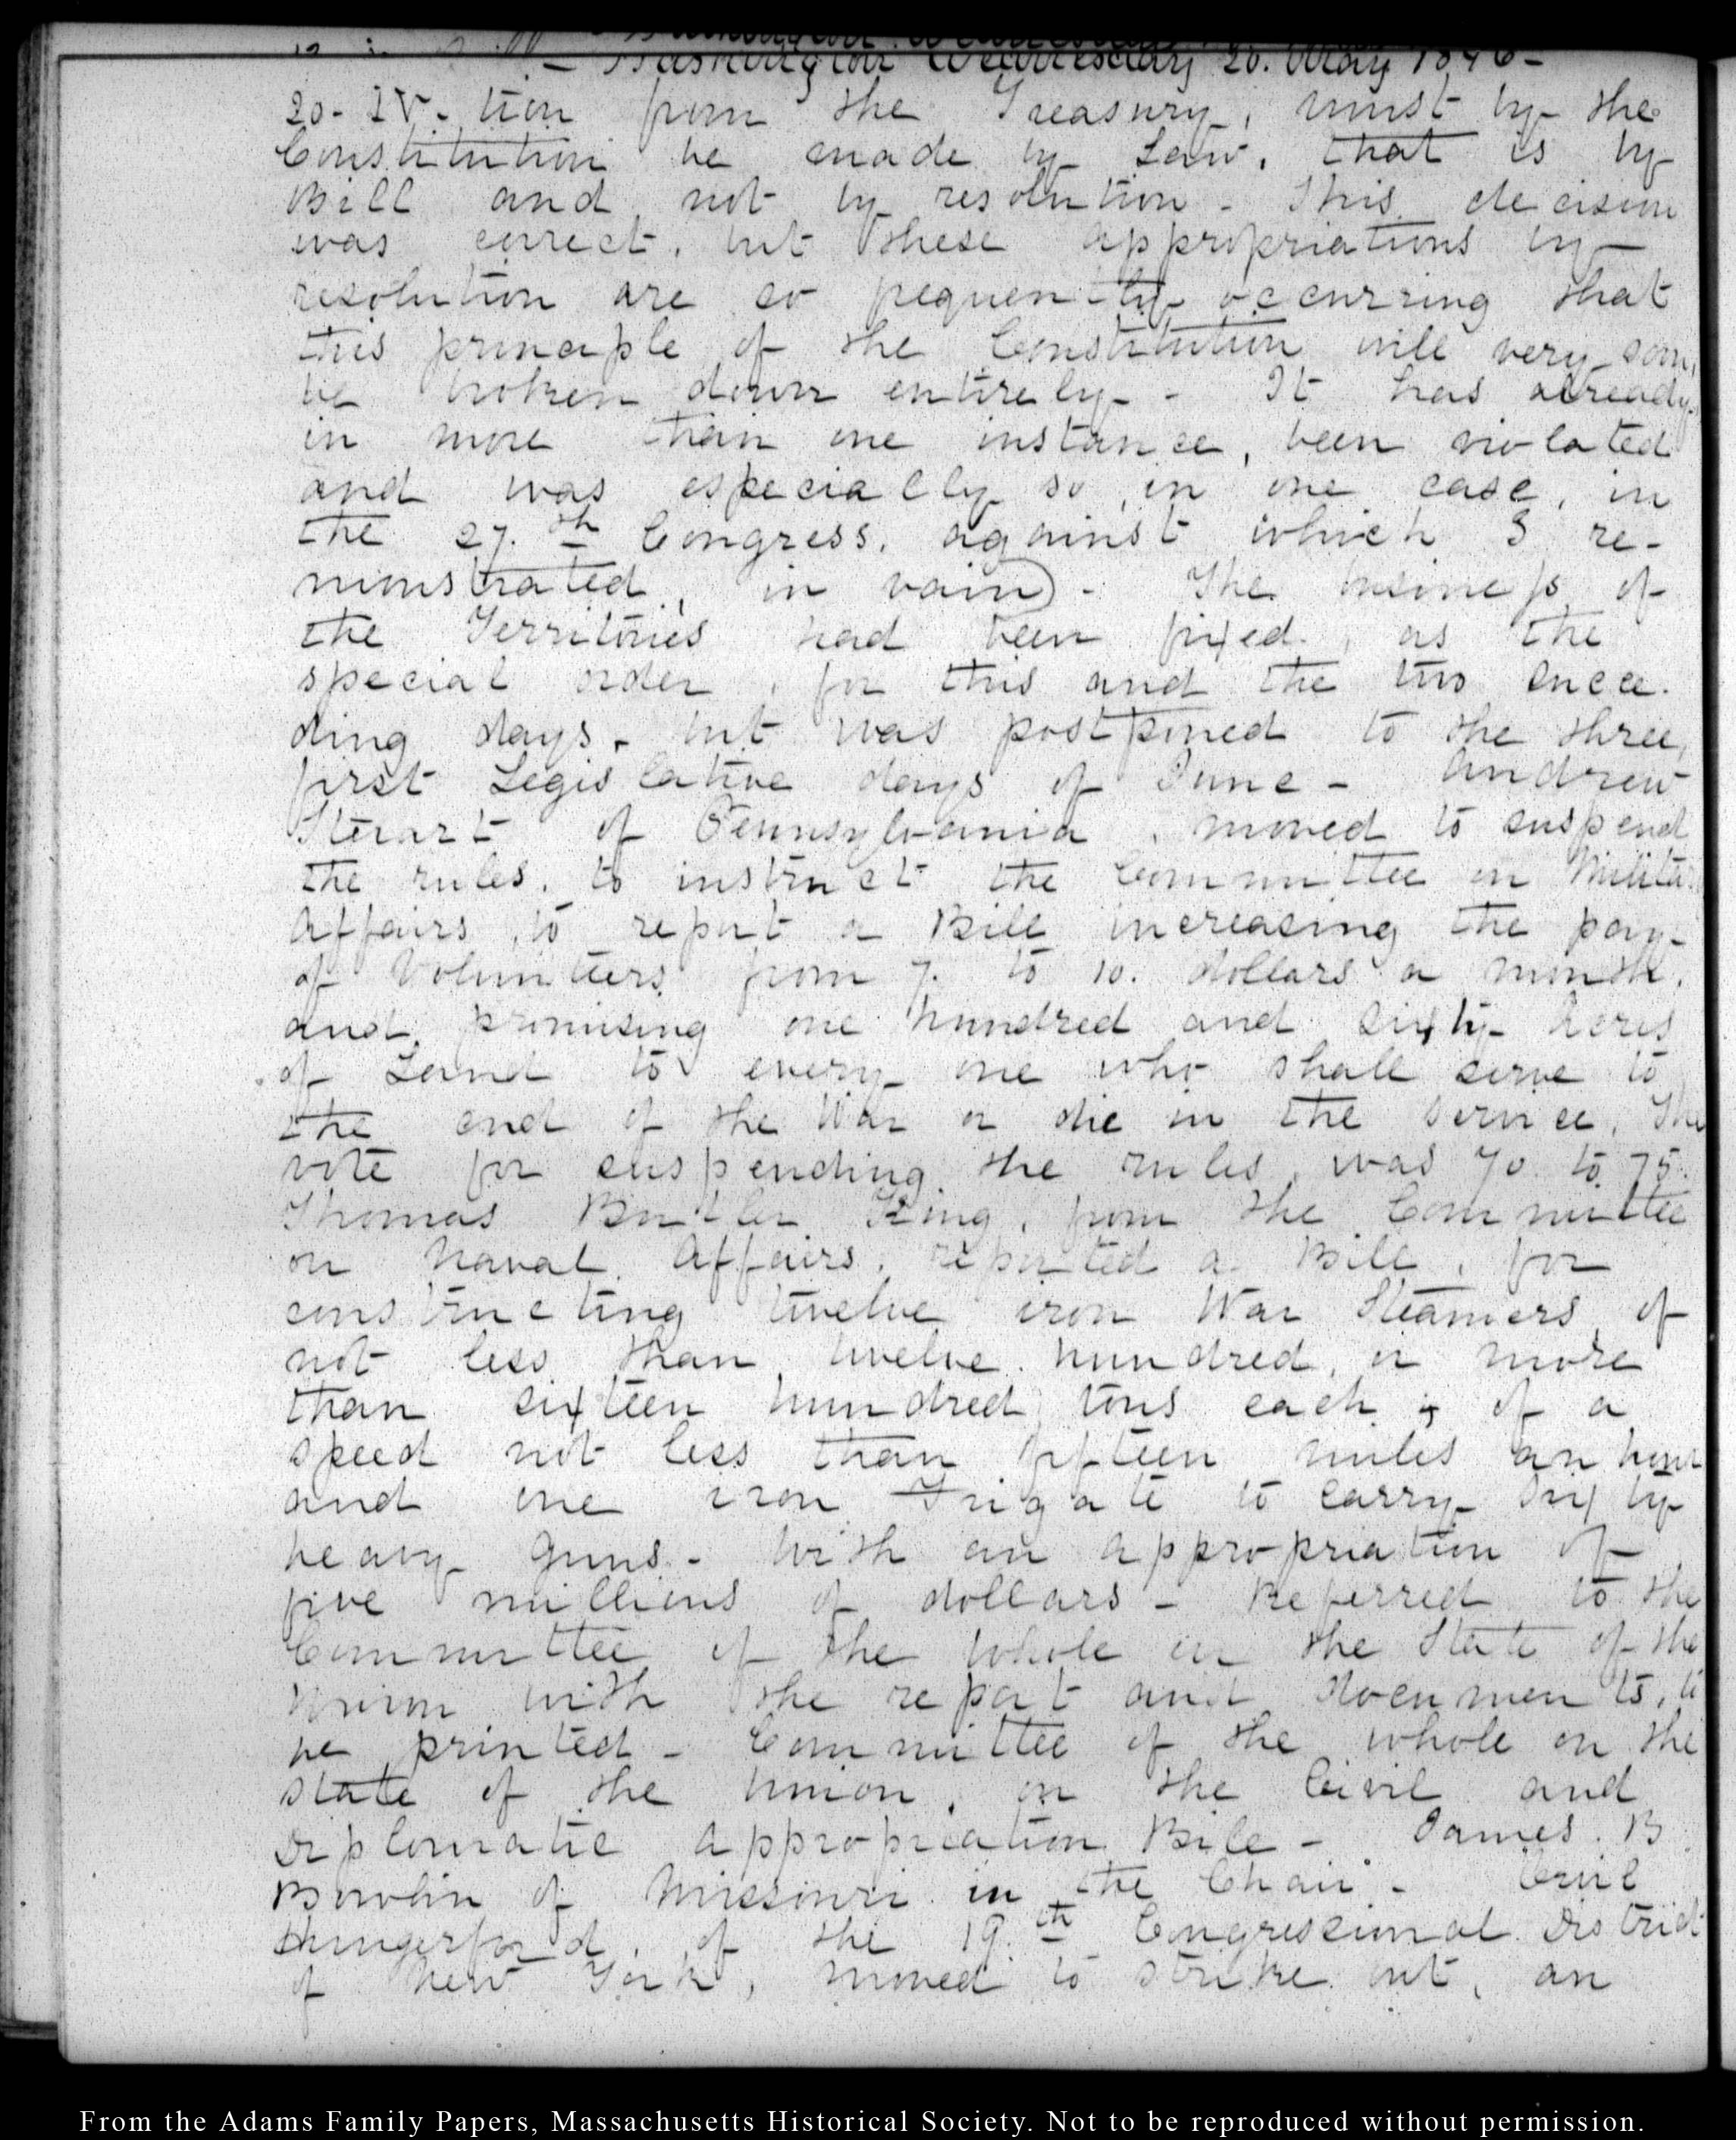 Washington Wednesday 20. May 1846-
20. IV. tion from the Treasury, must by the
Constitution be made by Law, that is by
Bill and not by resolution - This decision
was correct, but these appropriations by
resolution are so frequently occurring that
this principle of the Constitution will very soon,
be broken down entirely - It has already
in more than one instance, been violated
and was especially so, in one case, in
the 27.th Congress, against which I re-
monstrated, in vain) - The business of
the Territories had been fixed, as the
special order, for this and the two succee-
ding days, but was postponed to the three,
first Legislative days of June - Andrew
Stewart of Pennsylvania, moved to suspend
the rules, to instruct the Committee on Milita
Affairs, to report a Bill increasing the pay
of Volunteers from 7. to 10. dollars a month,
and promising one hundred and sixty Acres
of Land to every one who shall serve to
the end of the War or die in the service, The
vote for suspending the rules, was 70 to 75.
Thomas Butler King, from the Committee
on Naval Affairs, reported a Bill, for
constructing twelve iron War Steamers of
not less than twelve hundred, or more
than sixteen hundred tons each; of a
speed not less than fifteen miles an hour
and one iron Frigate to carry sixty
heavy guns - with an appropriation of
five millions of dollars - Referred to the
Committee of the whole on the State of the
Union with the report and documents, to
be printed - Committee of the whole on the
state of the Union, on the Civil and
Diplomatic Appropriation Bill - James. B
Bowlin of Missouri in the Chair - Orvil
Hungerford, of the 19.th Congressional District
of New York, moved to strike out, an
From the Adams Family Papers, Massachusetts Historical Society. Not to be reproduced without permission.